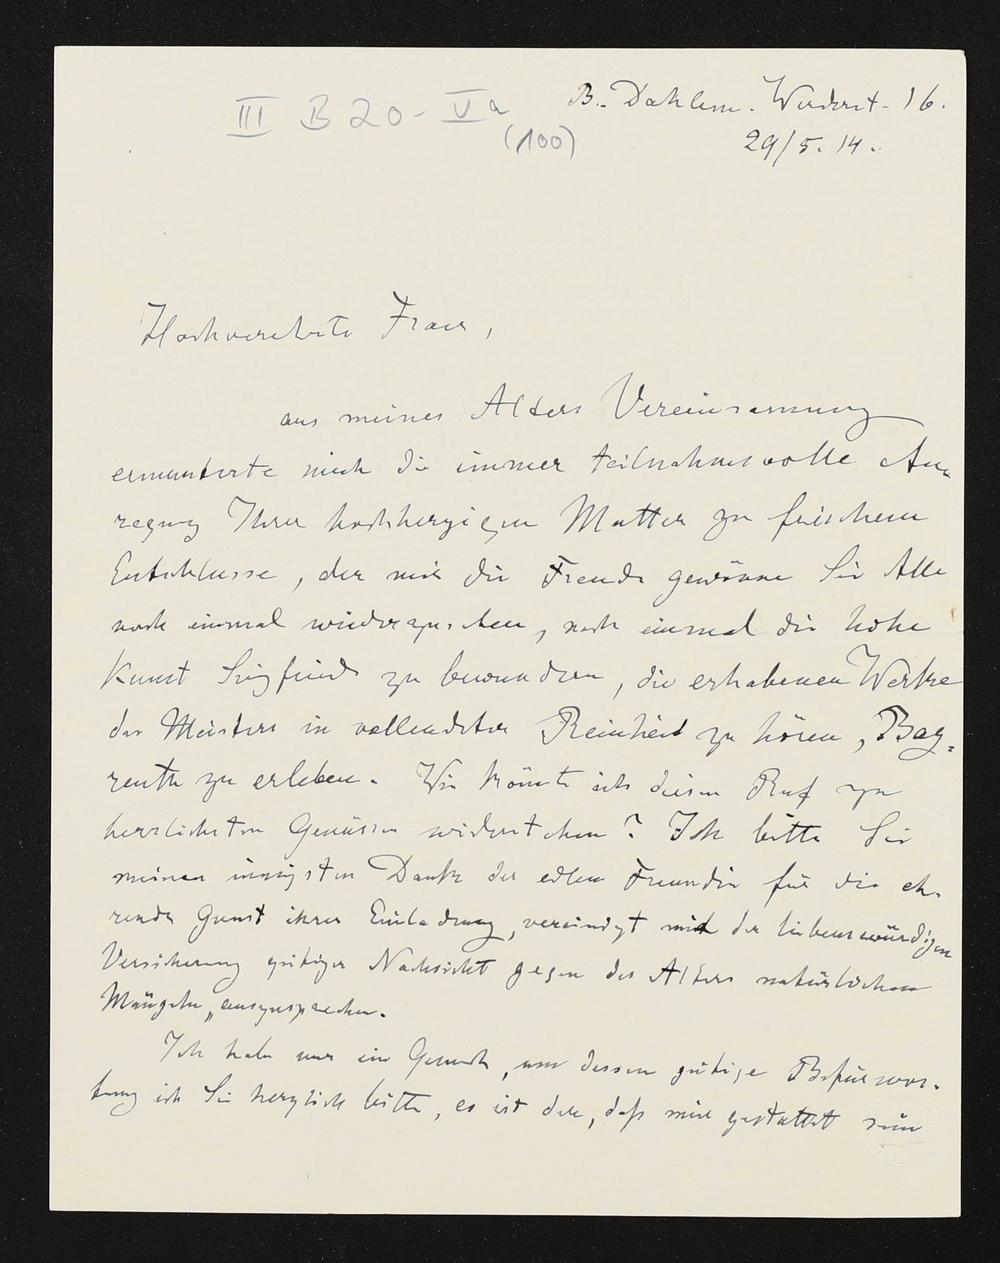 III B 20 - Va
(100)
B.- Dahlem. Werderst. 16.
29/5. 14.
Hochverehrte Frau,
aus meines Alters Vereinsamung
ermunterte mich die immer teilnahmsvolle An-
regung Ihrer hochherzigen Mutter zu frischem
Entschlusse, der mir die Freude gewönne Sie Alle
noch einmal wiederzusehen, noch einmal die hohe
Kunst Siegfrieds zu bewundern, die erhabenen Werke
des Meisters in vollendeter Reinheit zu hören, Bay-
reuth zu erleben. Wie könnte ich diesem Ruf zu
herrlichsten Genüssen widerstehen? Ich bitte Sie
meinen innigsten Dank der edlen Freundin für die eh-
rende Gunst ihrer Einladung, vereinigt mit der liebenswürdigen
Versicherung gütiger Nachsicht gegen des Alters natürlichen
Mängeln, auszusprechen.
Ich habe nur ein Gesuch, um dessen gütige Befürwor-
tung ich Sie herzlich bitte, es ist der, daß mir gestattet sein